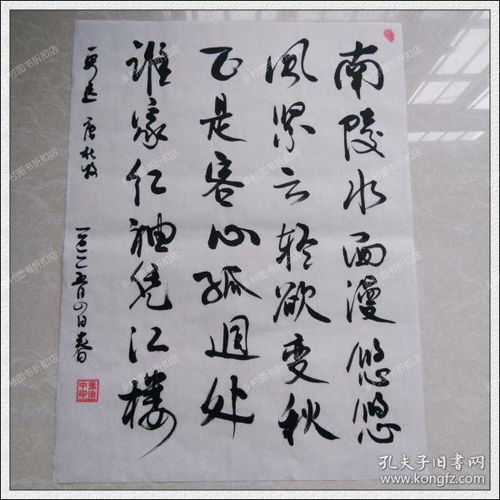 南陵水面漫悠悠
风紧云轻欲变秋
正是客心孤迥处
谁家红袖凭江楼
唐 杜牧
张治
中印
孔夫子旧书网
www.kongfz.com
乡村图书折扣店